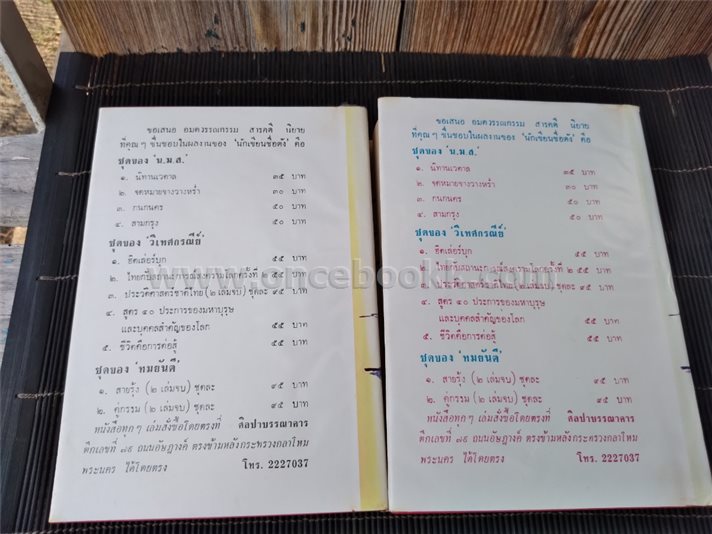 ขอเสนอ อมตวรรณกรรม สารคดี นิยาย
ที่คุณๆ ชื่นชอบในผลงานของ 'นักเขียนชื่อดัง' คือ
ชุดของ 'น.ม.ส.'
๑. นิทานเวตาล ๓๕ บาท
๒. จดหมายจางวางหร่ำ ๓๐ บาท
๓. กนกนคร ๕๐ บาท
๔. สามกรุง ๕๐ บาท
ชุดของ 'วิเทศกรณีย์'
๑. ฮิตเล่อร์บุก ๕๕ บาท
๒. ไทยกับสถานะการณ์สงครามโลกครั้งที่ ๒ ๕๕ บาท
๓. ประวัติศาสตร์ชาติไทย (๒ เล่มจบ) ชุดละ ๙๕ บาท
๔. สูตร ๔๐ ประการของมหาบุรุษ
และบุคคลสำคัญของโลก ๕๕ บาท
๕. ชีวิตคือการต่อสู้ ๕๕ บาท
ชุดของ 'ทมยันตี'
๑. สายรุ้ง (๒ เล่มจบ) ชุดละ ๙๕ บาท
๒. คู่กรรม (๒ เล่มจบ) ชุดละ ๙๕ บาท
หนังสือทุกๆ เล่มสั่งซื้อโดยตรงที่ ศิลปาบรรณาคาร
ตึกเลขที่ ๗๙ ถนนอัษฎางค์ ตรงข้ามหลังกระทรวงกลาโหม
พระนคร ได้โดยตรง โทร. 2227037
ขอเสนอ อมตวรรณกรรม สารคดี นิยาย
ที่คุณๆ ชื่นชอบในผลงานของ 'นักเขียนชื่อดัง' คือ
ชุดของ 'น.ม.ส.'
๑. นิทานเวตาล ๓๕ บาท
๒. จดหมายจางวางหร่ำ ๓๐ บาท
๓. กนกนคร ๕๐ บาท
๔. สามกรุง ๕๐ บาท
ชุดของ 'วิเทศกรณีย์'
๑. ฮิตเล่อร์บุก ๕๕ บาท
๒. ไทยกับสถานะการณ์สงครามโลกครั้งที่ ๒ ๕๕ บาท
๓. ประวัติศาสตร์ชาติไทย (๒ เล่มจบ) ชุดละ ๙๕ บาท
๔. สูตร ๔๐ ประการของมหาบุรุษ
และบุคคลสำคัญของโลก ๕๕ บาท
๕. ชีวิตคือการต่อสู้ ๕๕ บาท
ชุดของ 'ทมยันตี'
๑. สายรุ้ง (๒ เล่มจบ) ชุดละ ๙๕ บาท
๒. คู่กรรม (๒ เล่มจบ) ชุดละ ๙๕ บาท
หนังสือทุกๆ เล่มสั่งซื้อโดยตรงที่ ศิลปาบรรณาคาร
ตึกเลขที่ ๗๙ ถนนอัษฎางค์ ตรงข้ามหลังกระทรวงกลาโหม
พระนคร ได้โดยตรง โทร. 2227037